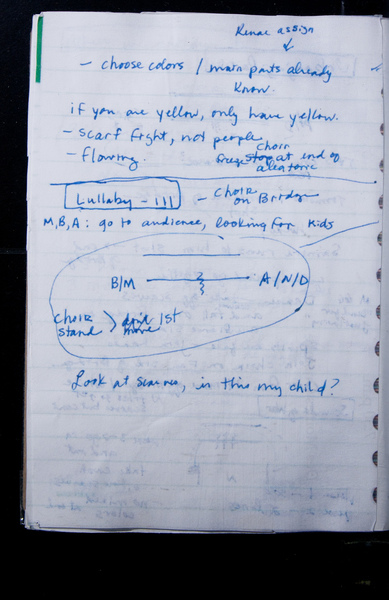 Renae assign
- choose colors / main parts already
know.
if you are yellow, only have yellow.
- scarf fight, not people
- flowing.
choir
freeze stop at end of
aleatoric
Lullaby - III
- choir
on Bridge
M, B, A: go to audience, looking for kids
B/M
A/N/D
choir
stand > and 1st
move
Look at scarves, is this my child?